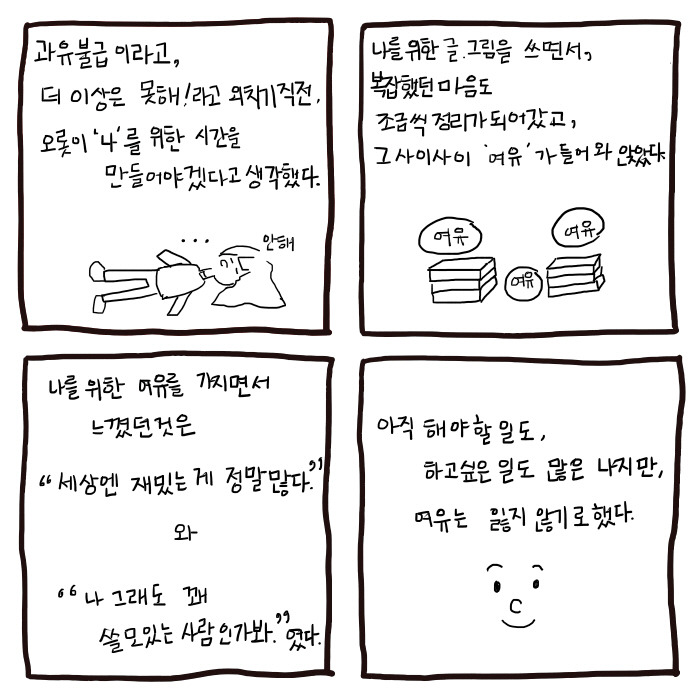 과유불급이라고,
더 이상은 못해!라고 외치기직전,
오롯이 '나'를 위한 시간을
만들어야겠다고 생각했다.
...
안해
나를위한 글.그림을 쓰면서,
복잡했던마음도
조금씩 정리가되어갔고,
그사이사이 '여유'가들어와 앉았다.
여유
여유
여유
나를위한 여유를 가지면서
느꼈던것은
"세상엔 재밌는게 정말많다."
와
"나 그래도 꽤
쓸모있는사람인가봐."였다.
아직 해야할일도,
하고싶은 일도 많은 나지만,
여유는 잃지 않기로했다.